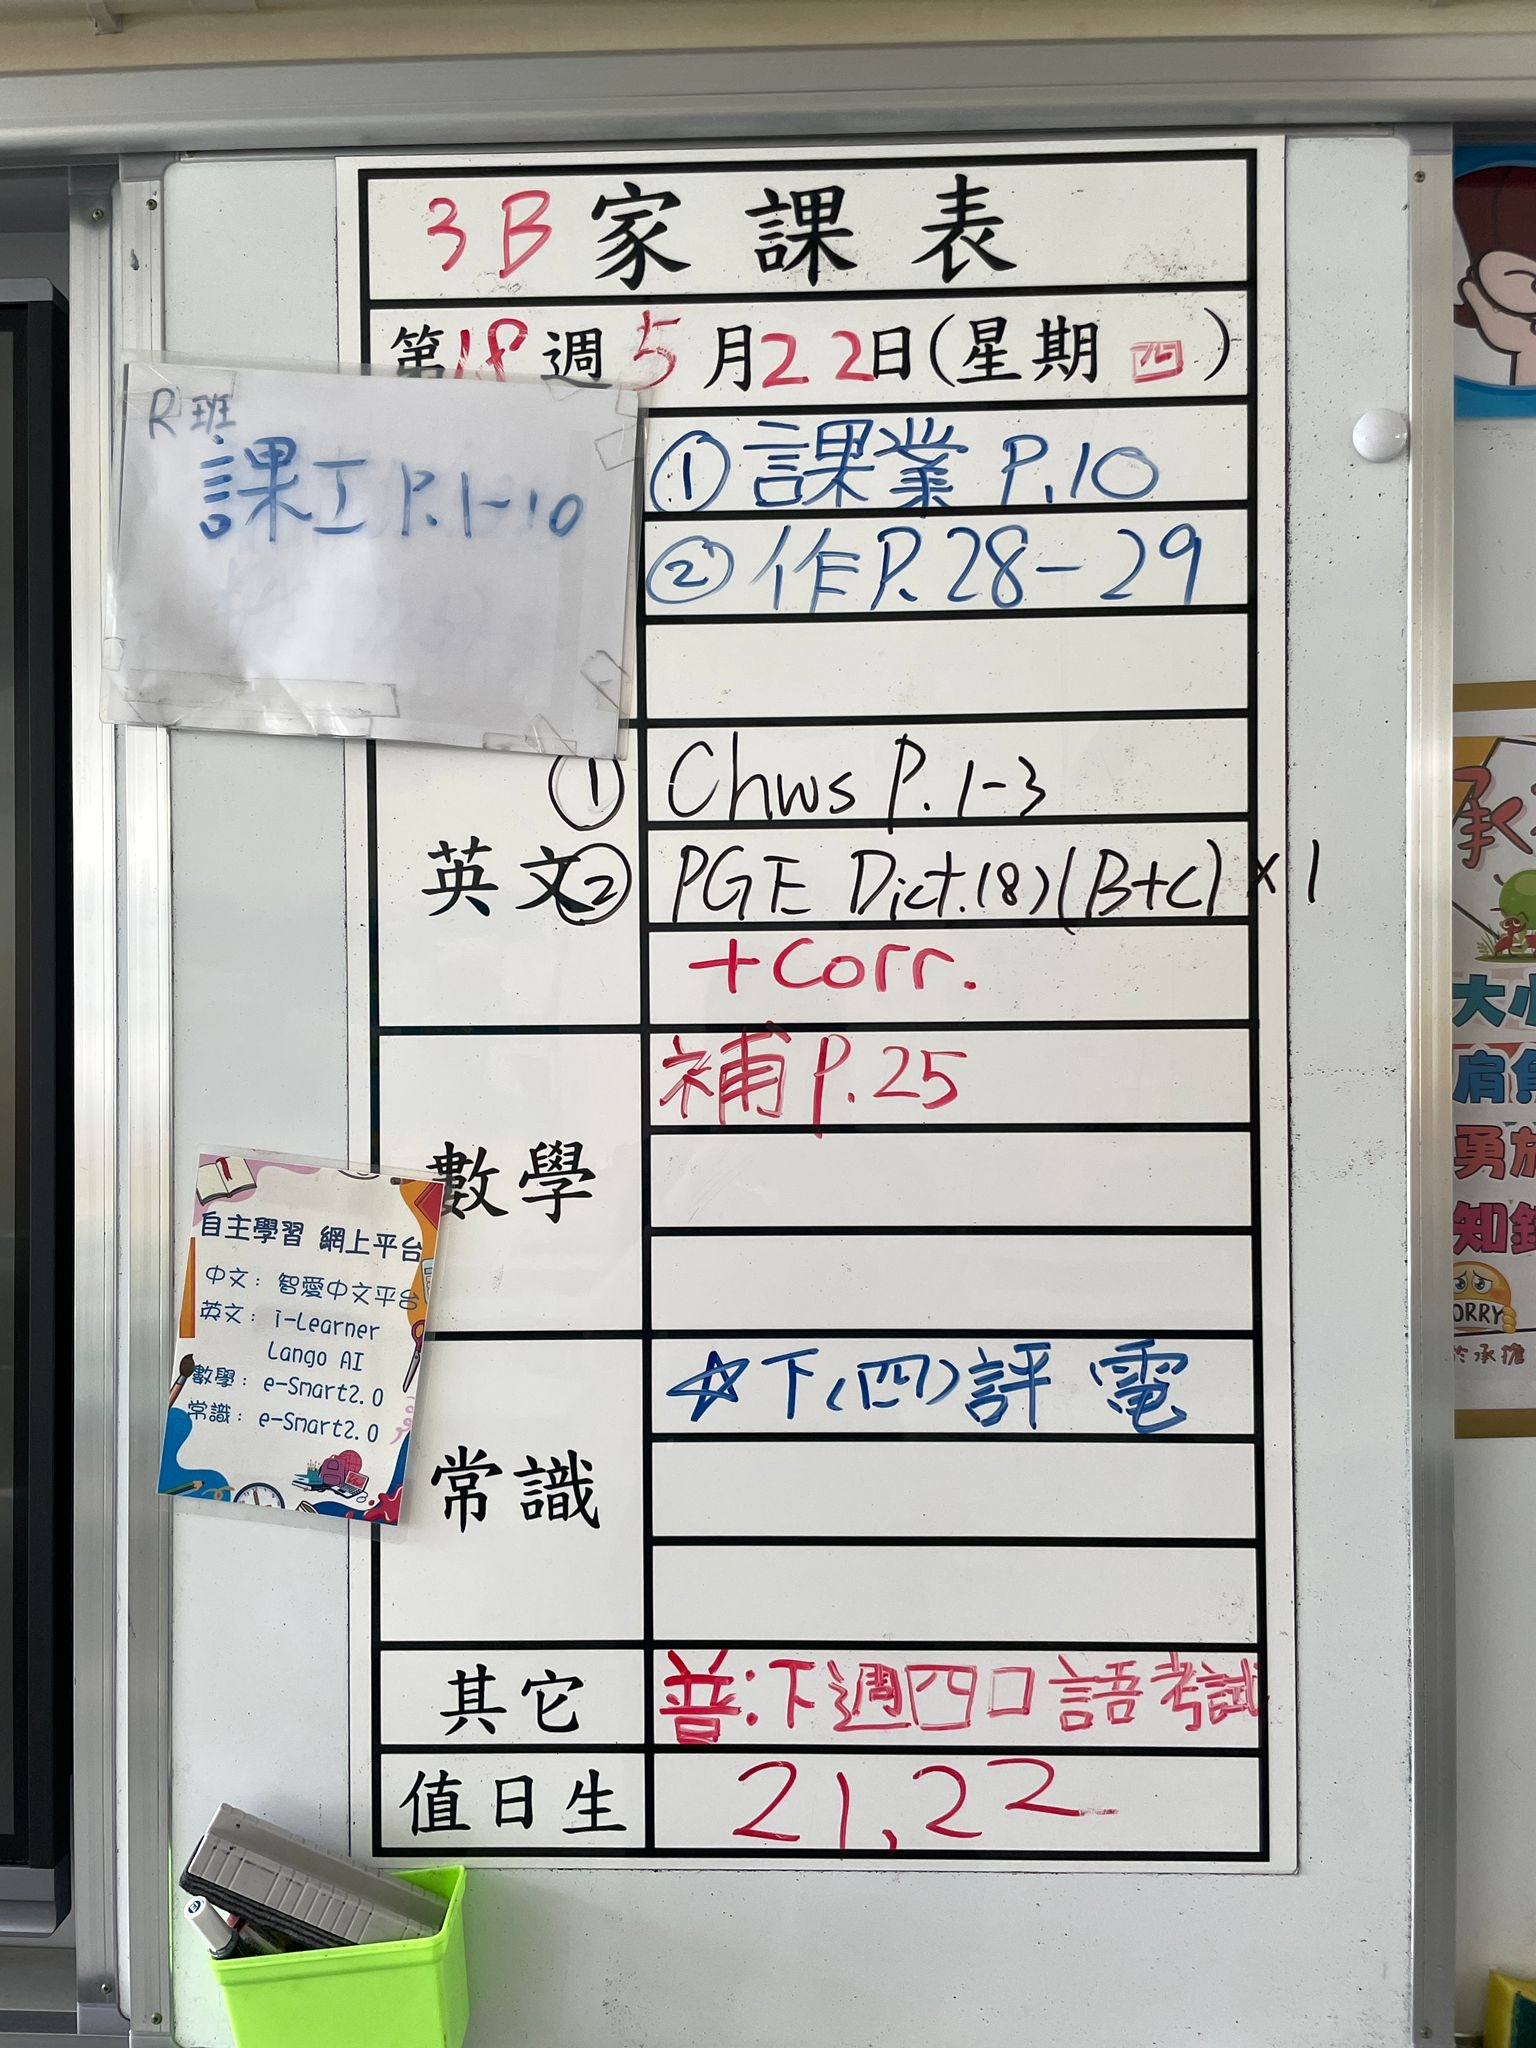 3B家課表
第18週5月22日(星期四)
R班
課工 P.1-10
① 課業 P.10
② 作 P.28-29
英文
① Chws P.1-3
② PGE Dict.(8)(B+C)×1
+Corr.
數學
補 P.25
常識
☆下(四)評電
其它
普:下週四口語考試
值日生
21,22
自主學習 網上平台
中文: 智愛中文平台
英文: i-Learner
Lango AI
數學: e-Smart2.0
常識: e-Smart2.0
承
大心
肩
勇於
知錯
ORRY
於承擔